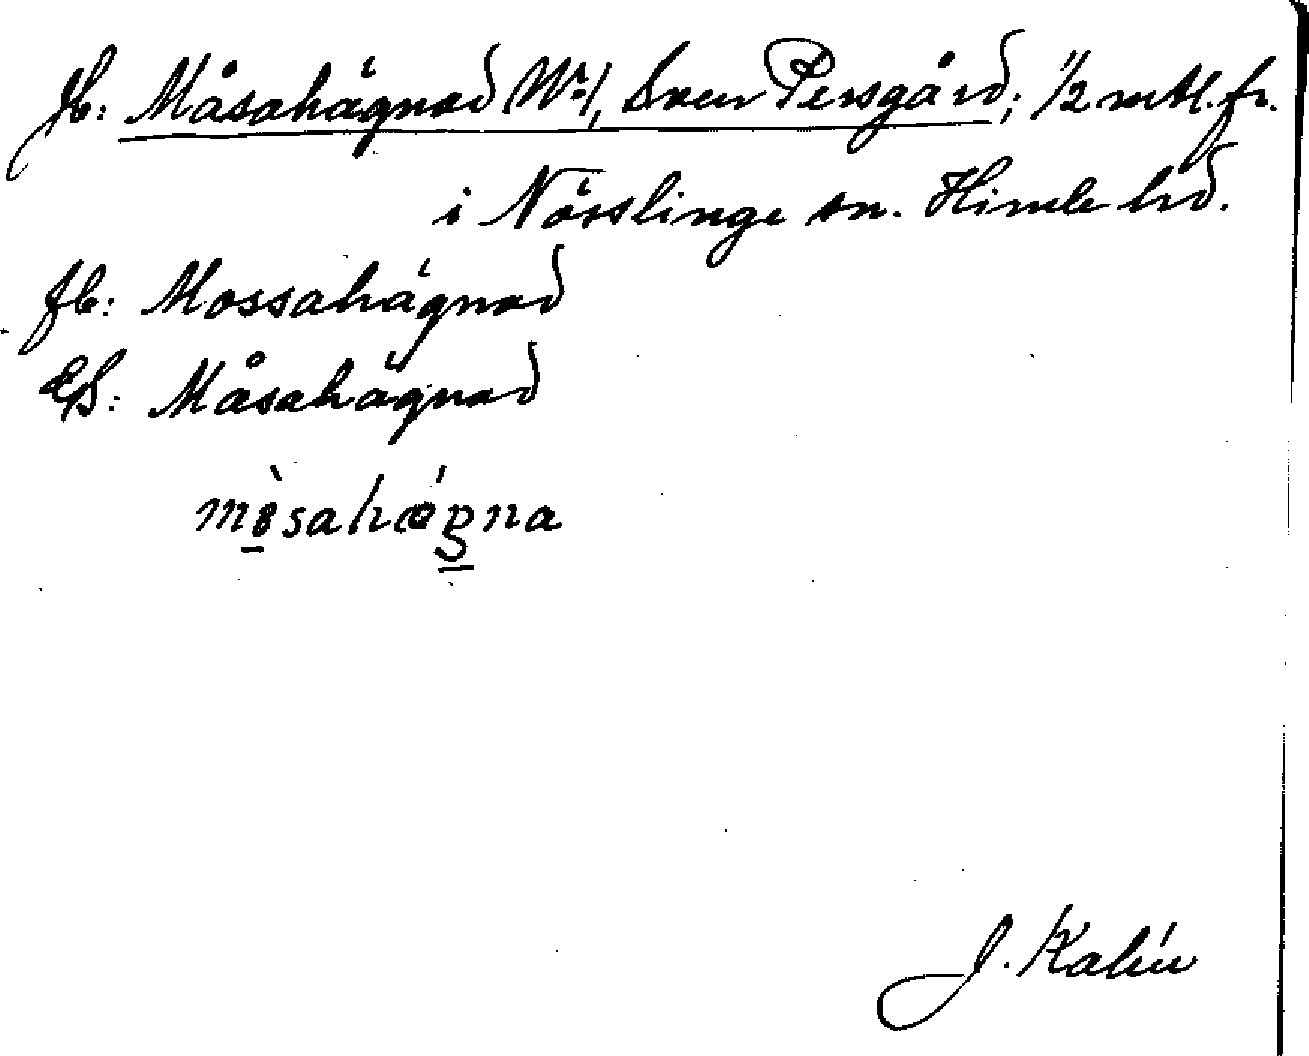 Jb: Måsahägnad No 1, Sven Persgård; 1/2 mtl. fr.
i Nösslinge sn. Himle hd.
fb: Mossahägnad
GS: Måsahägnad
mòsahǽgna
J. Kalén